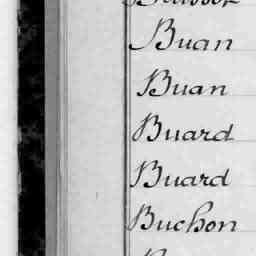 Buan
Buan
Buard
Buard
Buchon